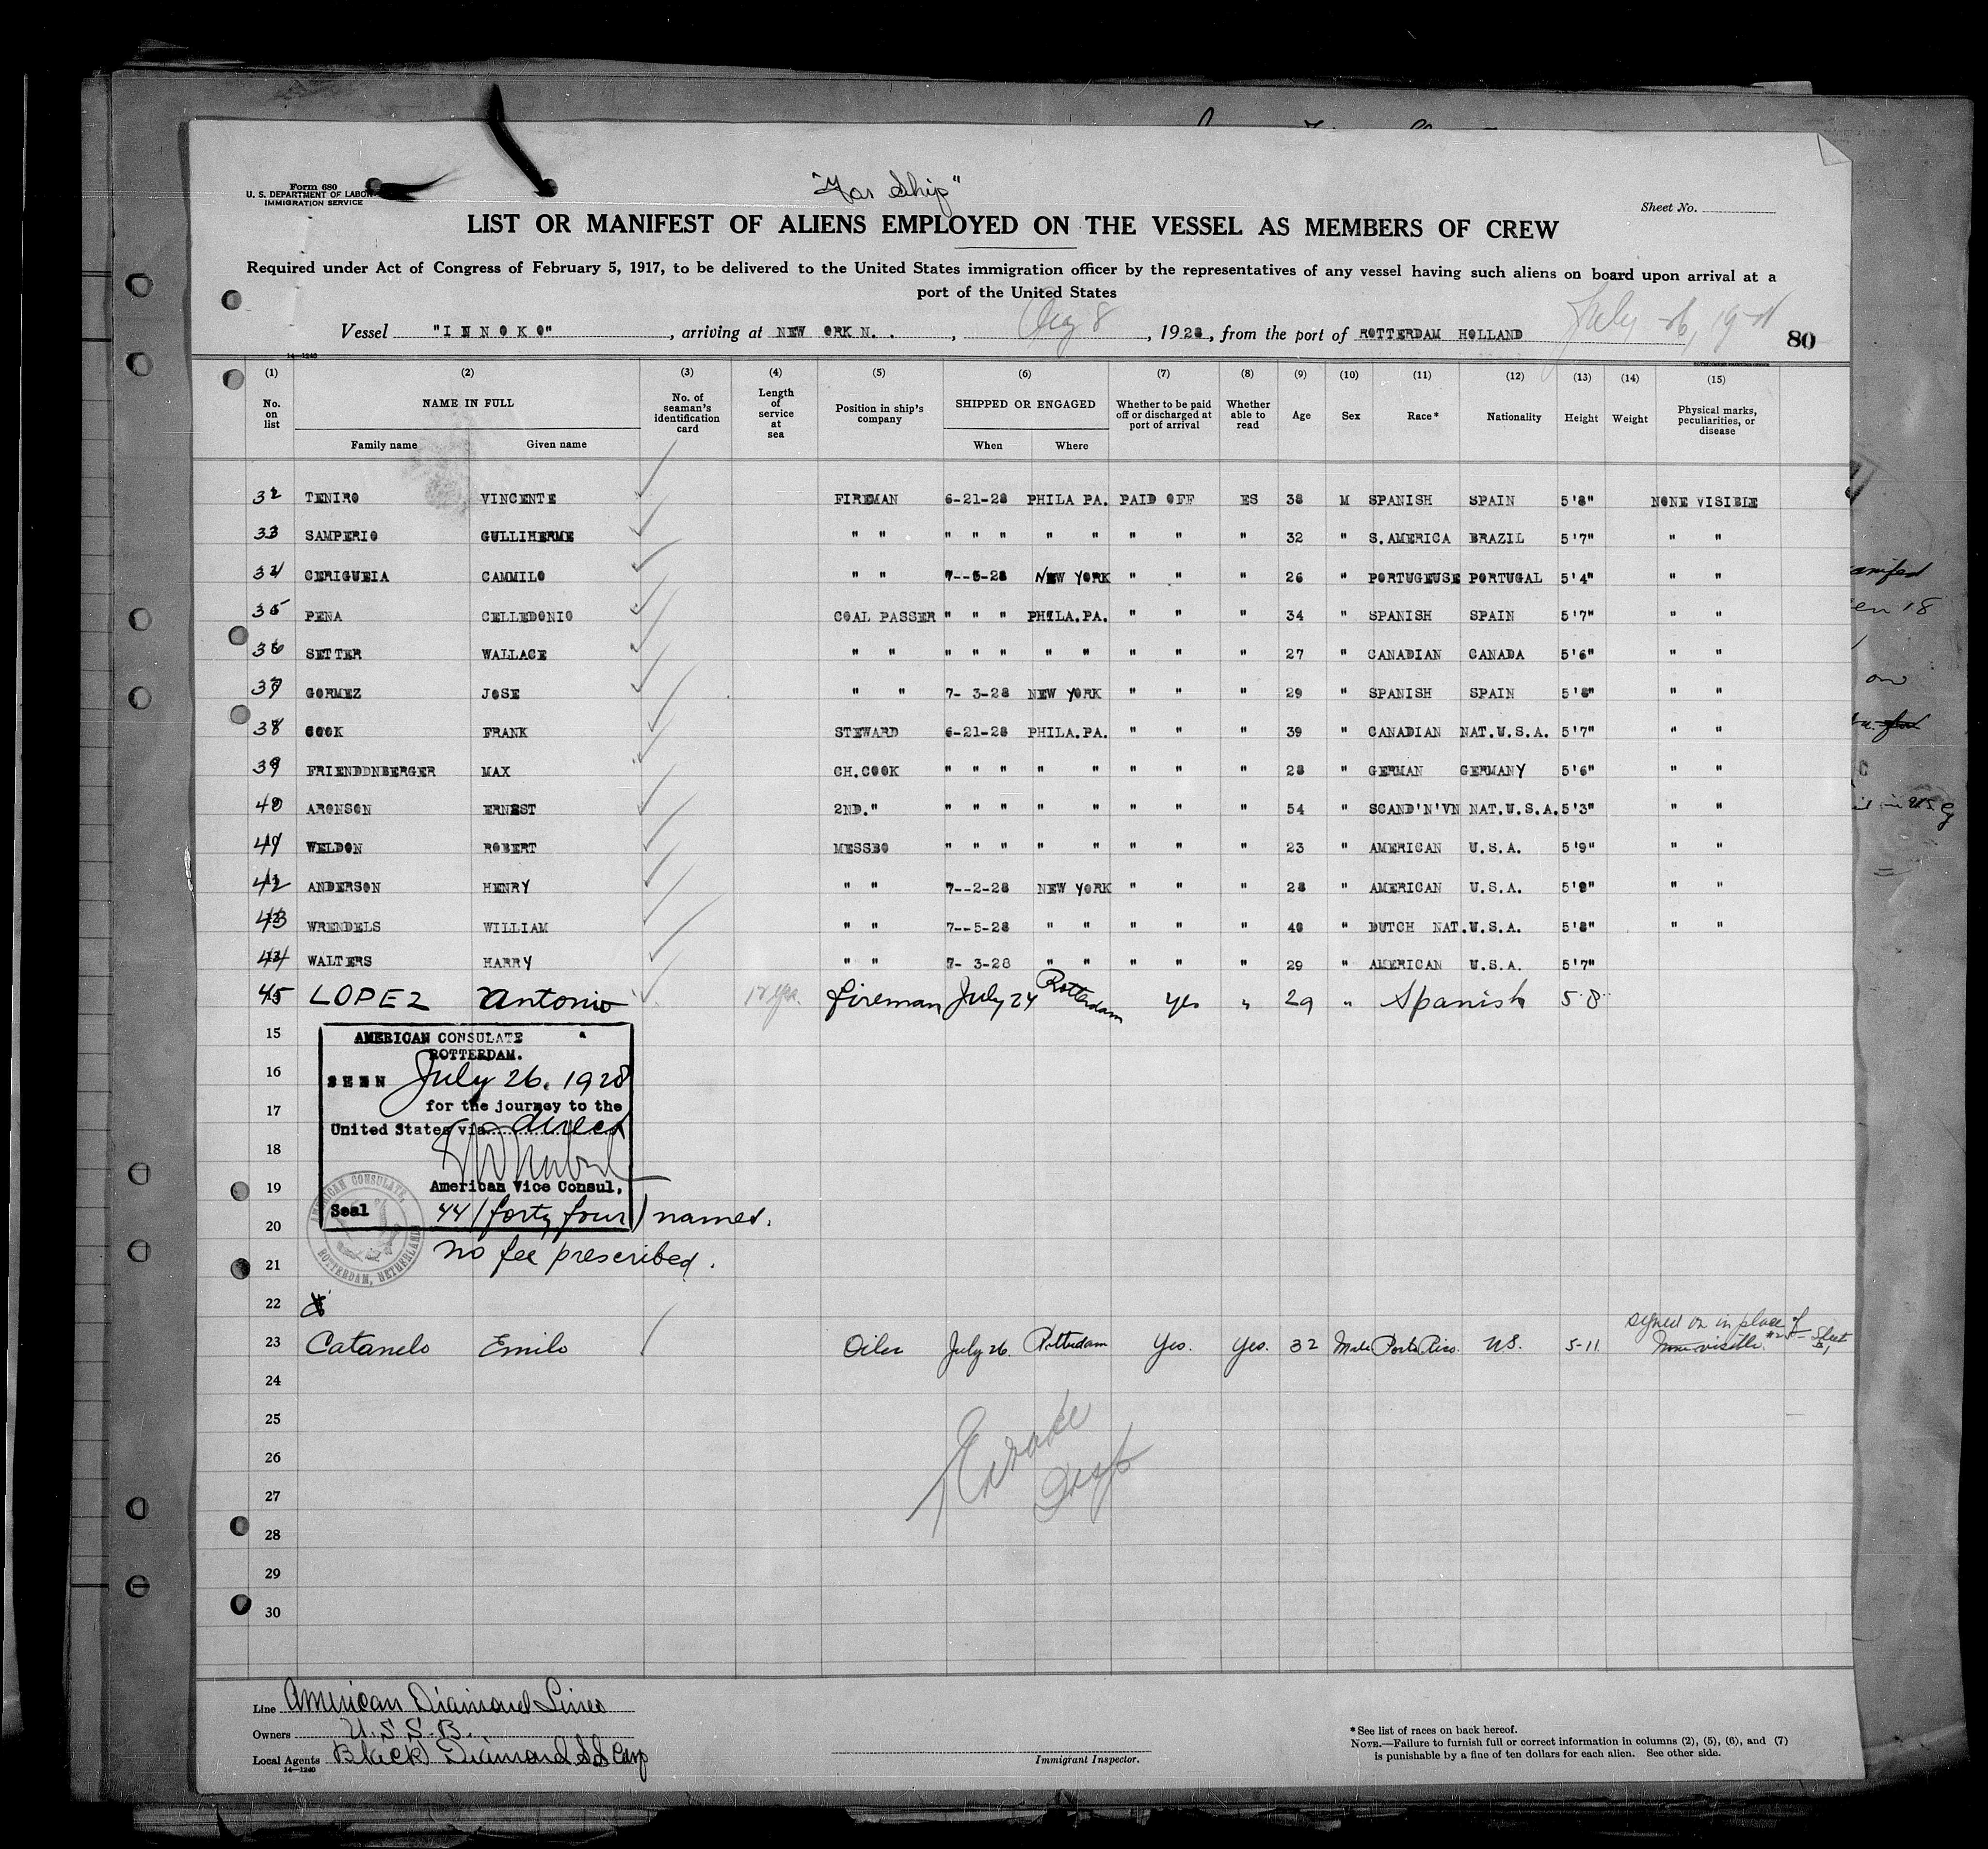 Form 680
U. S. DEPARTMENT OF LABOR
IMMIGRATION SERVICE
Ship"
Sheet No.
LIST OR MANIFEST OF ALIENS EMPLOYED ON THE VESSEL AS MEMBERS OF CREW
Required under Act of Congress of February 5, 1917, to be delivered to the United States immigration officer by the representatives of any vessel having such aliens on board upon arrival at a
port of the United States
Vessel "INNOKO", arriving at NEW ORK N. . , Aug 8, 1928, from the port of ROTTERDAM HOLLAND July 26, 19 80
14—1240
(1) (2) (3) (4) (5) (6) (7) (8) (9) (10) (11) (12) (13) (14) (15)
No. on list NAME IN FULL No. of seaman's identification card Length of service at sea Position in ship's company SHIPPED OR ENGAGED Whether to be paid off or discharged at port of arrival Whether able to read Age Sex Race* Nationality Height Weight Physical marks, peculiarities, or disease
Family name Given name When Where
32 TENIRO VINCENTE FIREMAN 6-21-28 PHILA PA. PAID OFF ES 38 M SPANISH SPAIN 5'8" NONE VISIBLE
33 SAMPERIO GULLIHERME " " " " " " " " " " 32 " S.AMERICA BRAZIL 5'7" " "
34 CERIGUEIA CAMMILO " " 7--5-28 NEW YORK " " " 26 " PORTUGEUSE PORTUGAL 5'4" " "
35 PENA CELLEDONIO COAL PASSER " " " PHILA.PA. " " " 34 " SPANISH SPAIN 5'7" " "
36 SETTER WALLACE " " " " " " " " " " 27 " CANADIAN CANADA 5'6" " "
37 GORMEZ JOSE " " 7- 3-28 NEW YORK " " " 29 " SPANISH SPAIN 5'8" " "
38 COOK FRANK STEWARD 6-21-28 PHILA.PA. " " " 39 " CANADIAN NAT.U.S.A. 5'7" " "
39 FRIENDDNBERGER MAX CH.COOK " " " " " " " " 28 " GERMAN GERMANY 5'6" " "
40 ARONSON ERNEST 2ND." " " " " " " " " 54 " SCAND'N'VN NAT.U.S.A. 5'3" " "
41 WELDON ROBERT MESSBO " " " " " " " " 23 " AMERICAN U.S.A. 5'9" " "
42 ANDERSON HENRY " " 7--2-28 NEW YORK " " " 28 " AMERICAN U.S.A. 5'9" " "
43 WRENDELS WILLIAM " " 7--5-28 " " " " " 40 " DUTCH NAT.U.S.A. 5'8" " "
44 WALTERS HARRY " " 7- 3-28 " " " " " 29 " AMERICAN U.S.A. 5'7"
45 LOPEZ Antonio 12 yrs. fireman July 24 Rotterdam yes " 29 " Spanish 5 8"
15 AMERICAN CONSULATE
ROTTERDAM.
16 SEEN July 26. 1928
17 for the journey to the
United States via direct
18
19 American Vice Consul,
Seal 44 (forty four) names.
20
21 no fee prescribed.
AMERICAN CONSULATE, ROTTERDAM, NETHERLANDS
22
signed on in place of
23 Catanelo Emilo Oiler July 26. Rotterdam Yes. Yes. 32 Male Porto Rico. US. 5-11 None visible. #2 Sheet 1
24
25
26
27
28
29
30
Line American Diamond Lines
Owners U.S.S.B.
Local Agents Black Diamond SS Corp
14—1240
Immigrant Inspector.
* See list of races on back hereof.
NOTE.—Failure to furnish full or correct information in columns (2), (5), (6), and (7)
is punishable by a fine of ten dollars for each alien. See other side.